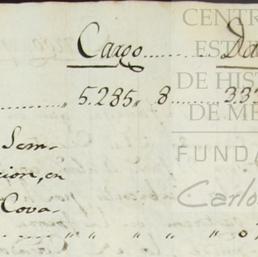 Cargo........ Da
5.285,, 8 ...... 33
Sem-
cion, en
Cova-
,, ,, ,, ,, 0
CENTR
ES
DE HIS
DE M
FUNDA
Carlo